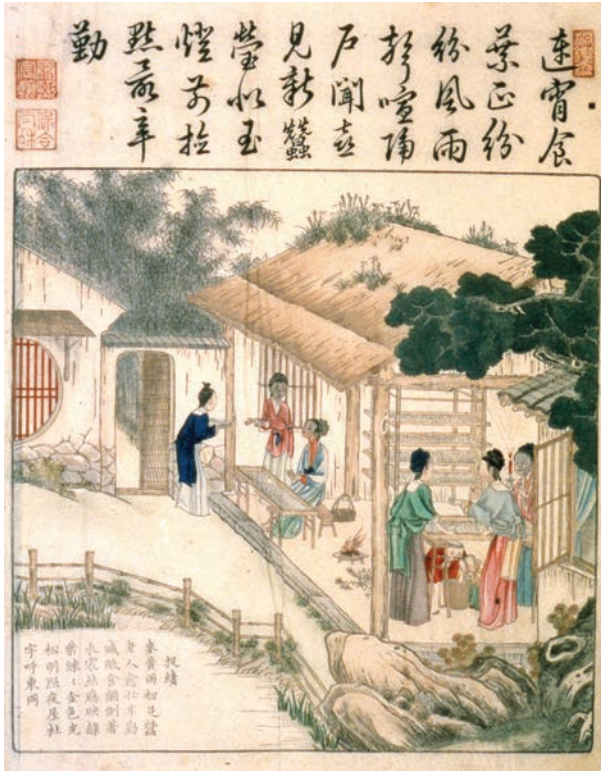 連宵食
葉正紛
紛風雨
聲喧隔
戶聞喜
見新蠶
瑩似玉
燈前檢
點最辛
勤
捉績
麥黃雨初足蠶
老人愈忙辛勤
減眠食顛倒著
衣裳絲腸映綠
葉練〻金色光
松明照夜屋杜
宇呼東岡